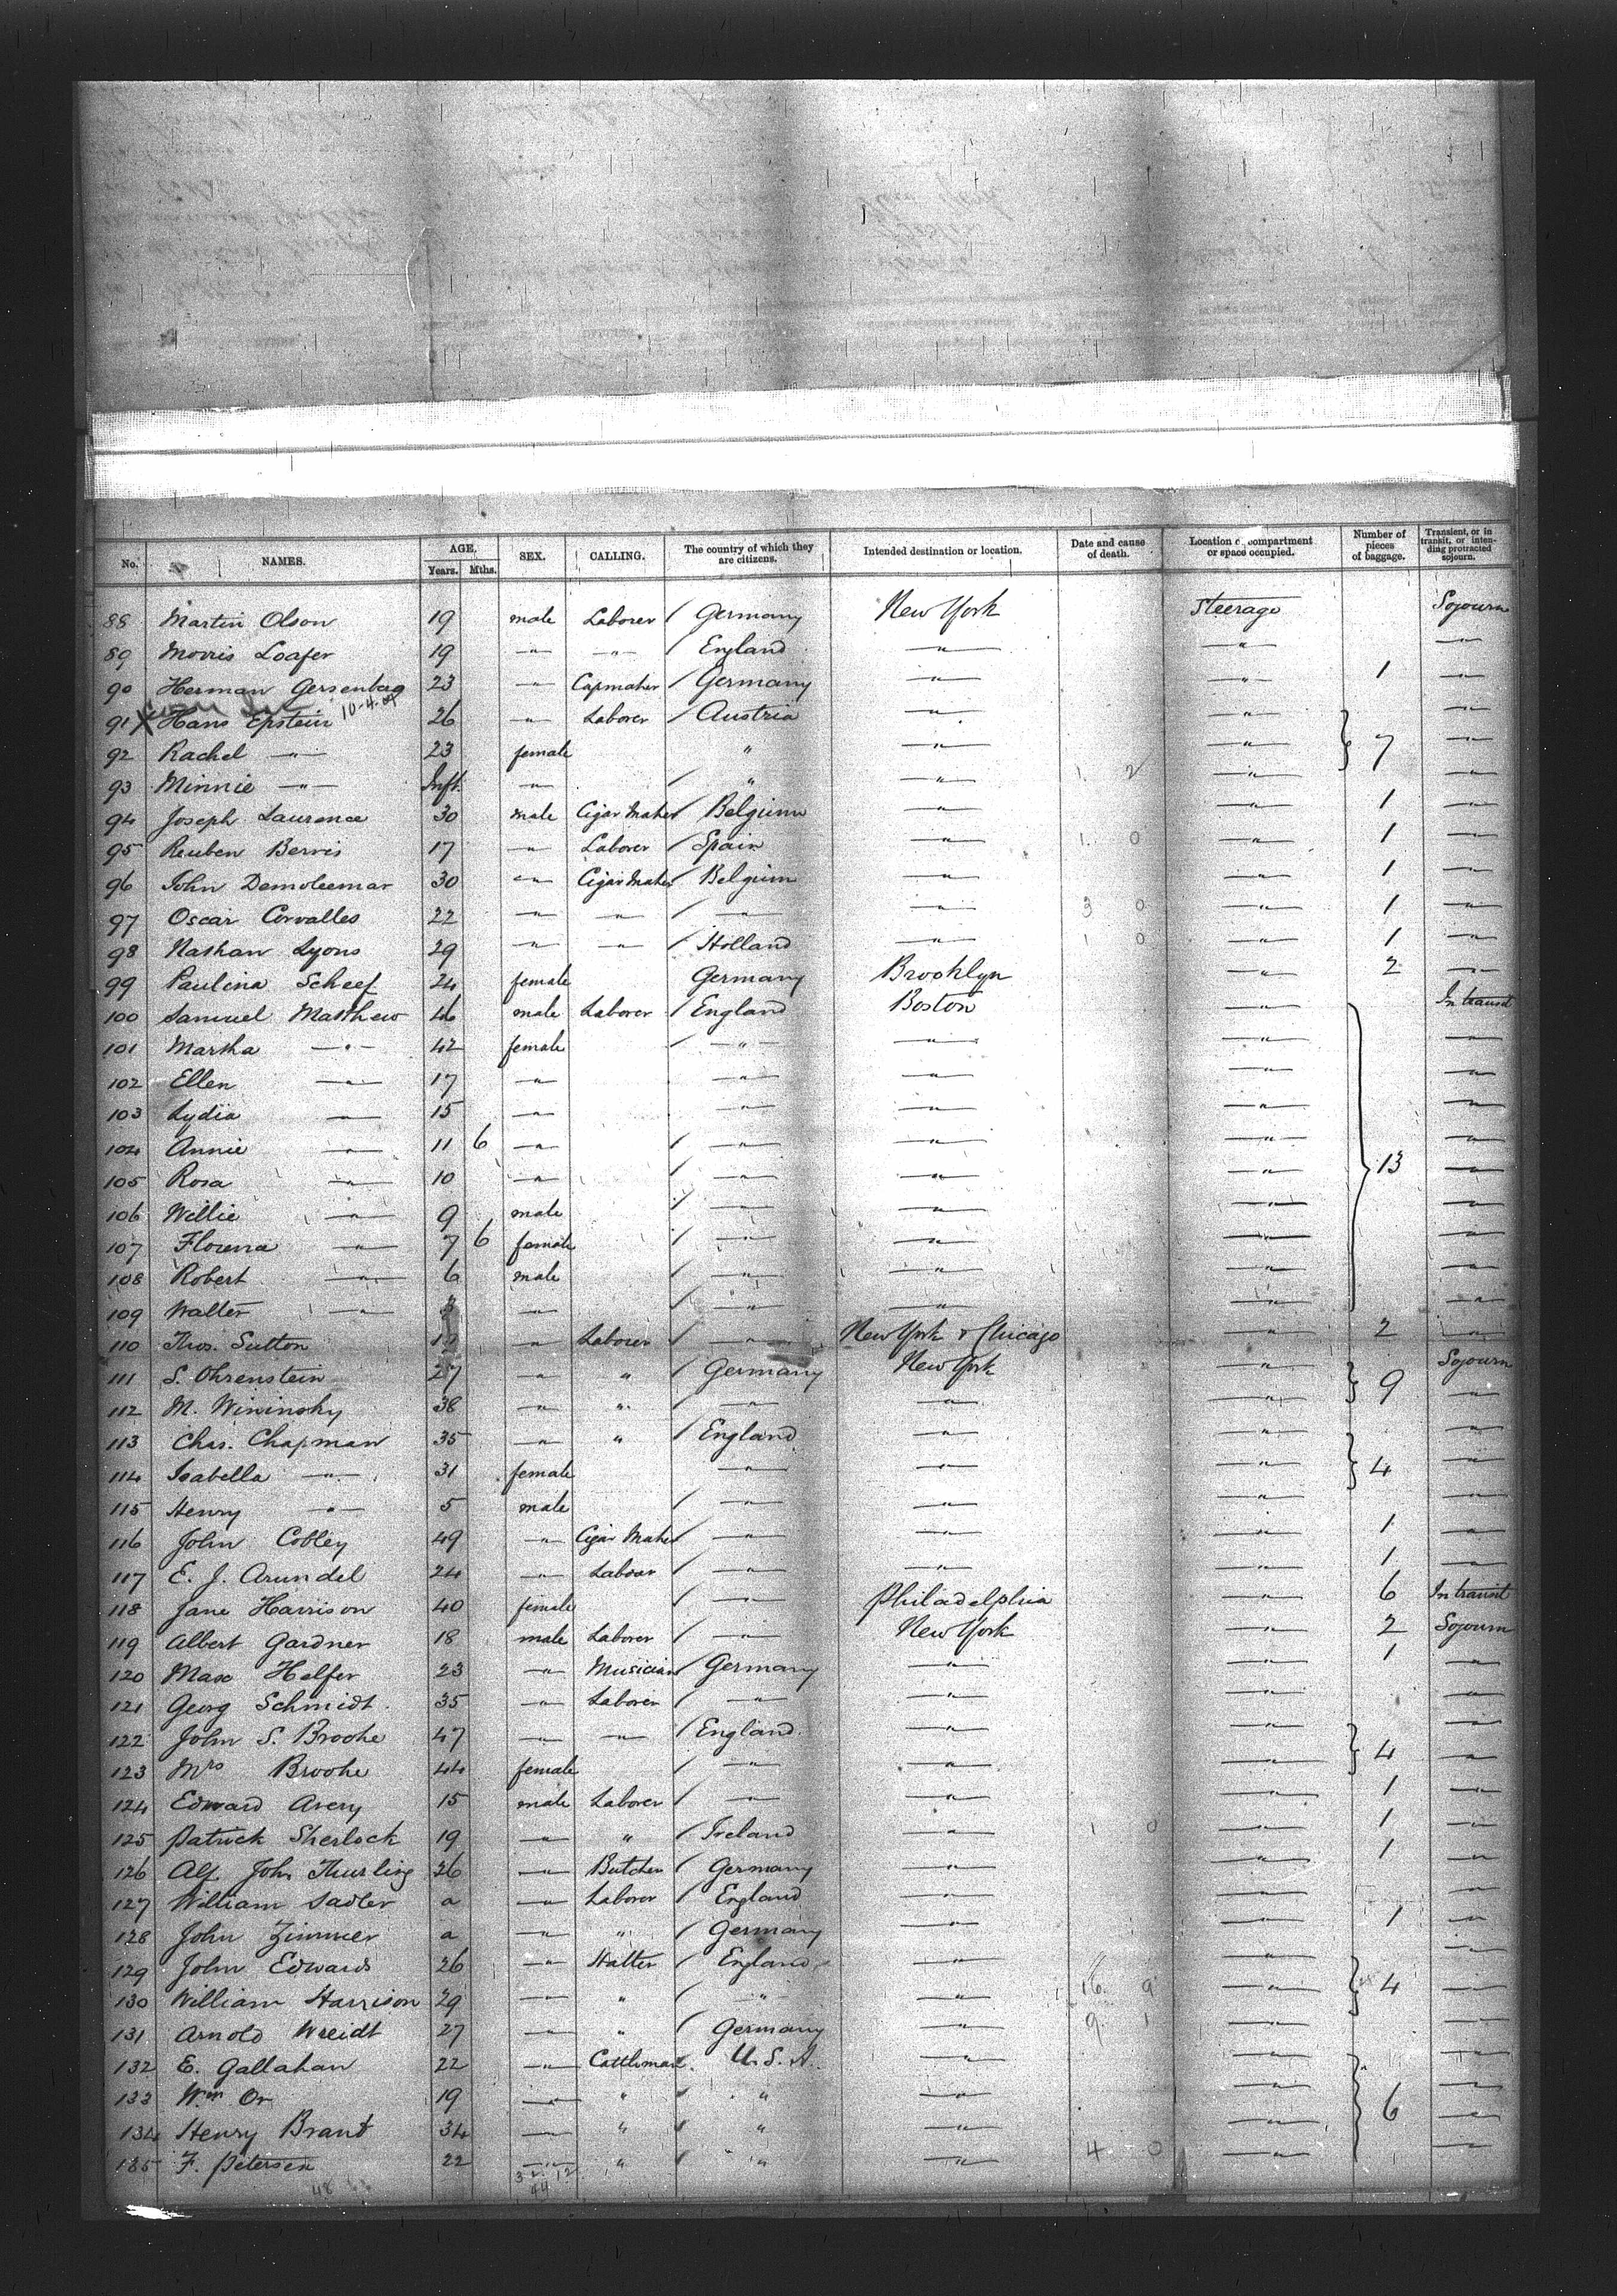 No. NAMES. AGE. Years. Mths. SEX. CALLING. The country of which they are citizens. Intended destination or location. Date and cause of death. Location compartment or space occupied. Number of pieces of baggage. Transient, or in transit, or intending protracted sojourn.
88 Martin Olson 19 male Laborer / Germany New York Steerage Sojourn
89 Morris Loafer 19 " " / England " " "
90 Herman Gersenberg 23 " Capmaker / Germany " " 1 "
10-4-04
91 X Hans Epstein 26 " Laborer / Austria " " "
92 Rachel " 23 female " " " 7 "
93 Minnie " Inft. " / " " 1. 2 " "
94 Joseph Laurence 30 male Cigar Maker / Belgium " " 1 "
95 Reuben Berris 17 " Laborer / Spain " 1. 0 " 1 "
96 John Demoleemar 30 " Cigar Maker / Belgium " " 1 "
97 Oscar Corvalles 22 " " / " " 3 0 " 1 "
98 Nathan Lyons 29 " " / Holland " 1 0 " 1 "
99 Paulina Scheef 24 female Germany Brooklyn " 2 "
100 Samuel Matthew 46 male Laborer / England Boston " In transit
101 Martha " 42 female / " " " "
102 Ellen " 17 " " " " "
103 Lydia " 15 " " " " "
104 Annie " 11 6 " / " " " "
105 Rosa " 10 " / " " " 13 "
106 Willie " 9 male / " " " "
107 Florence " 7 6 female / " " " "
108 Robert " 6 male / " " " "
109 Walter " " / " " " "
110 Thos. Sutton " Laborer / " New York & Chicago " 2 "
111 S. Ohrenstein 27 " " / Germany New York " 9 Sojourn
112 M. Wininsky 38 " " / " " " "
113 Chas. Chapman 35 " " / England " " "
114 Isabella " 31 female " " " 4 "
115 Henry " 5 male / " " " "
116 John Cobley 49 " Cigar Maker / " " " 1 "
117 E. J. Arundel 24 " Laborer / " " " 1 "
118 Jane Harrison 40 female / " Philadelphia " 6 In transit
119 Albert Gardner 18 male Laborer / " New York " 2 Sojourn
120 Max Helfer 23 " Musician / Germany " " 1 "
121 Georg Schmidt 35 " Laborer / " " " "
122 John S. Brooke 47 " " / England " " "
123 Mrs Brooke 44 female / " " " 4 "
124 Edward Avery 15 male Laborer / " " " 1 "
125 Patrick Sherlock 19 " " / Ireland " 1 0 " 1 "
126 Alf John Thurling 26 " Butcher / Germany " " 1 "
127 William Sadler a " Laborer / England " " "
128 John Zimmer a " " / Germany " " 1 "
129 John Edwards 26 " Hatter / England " " "
130 William Harrison 29 " " " " 16 9 " 4 "
131 Arnold Wreidt 27 " " / Germany " 9 1 " "
132 E. Gallahan 22 " Cattleman U.S.A. " " "
133 Wm Or 19 " " / " " " "
134 Henry Brant 34 " " / " " " 6 "
135 F. Petersen 22 " " / " " 4 0 " "
48
44